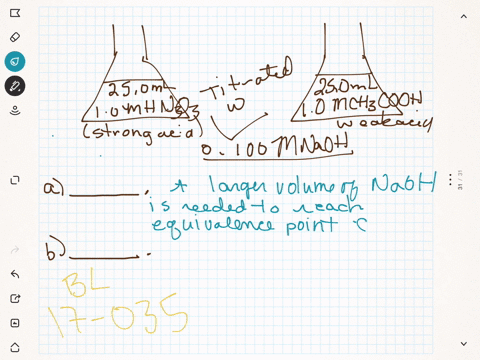 25.0mL
1.0 M HNO3
(strong acid)
Titrated
w
0.100 M NaOH
25.0mL
1.0 M CH3COOH
weak acid
a) ______. * larger volume of NaOH
is needed to reach
equivalence point
b) ______.
BL
17-035